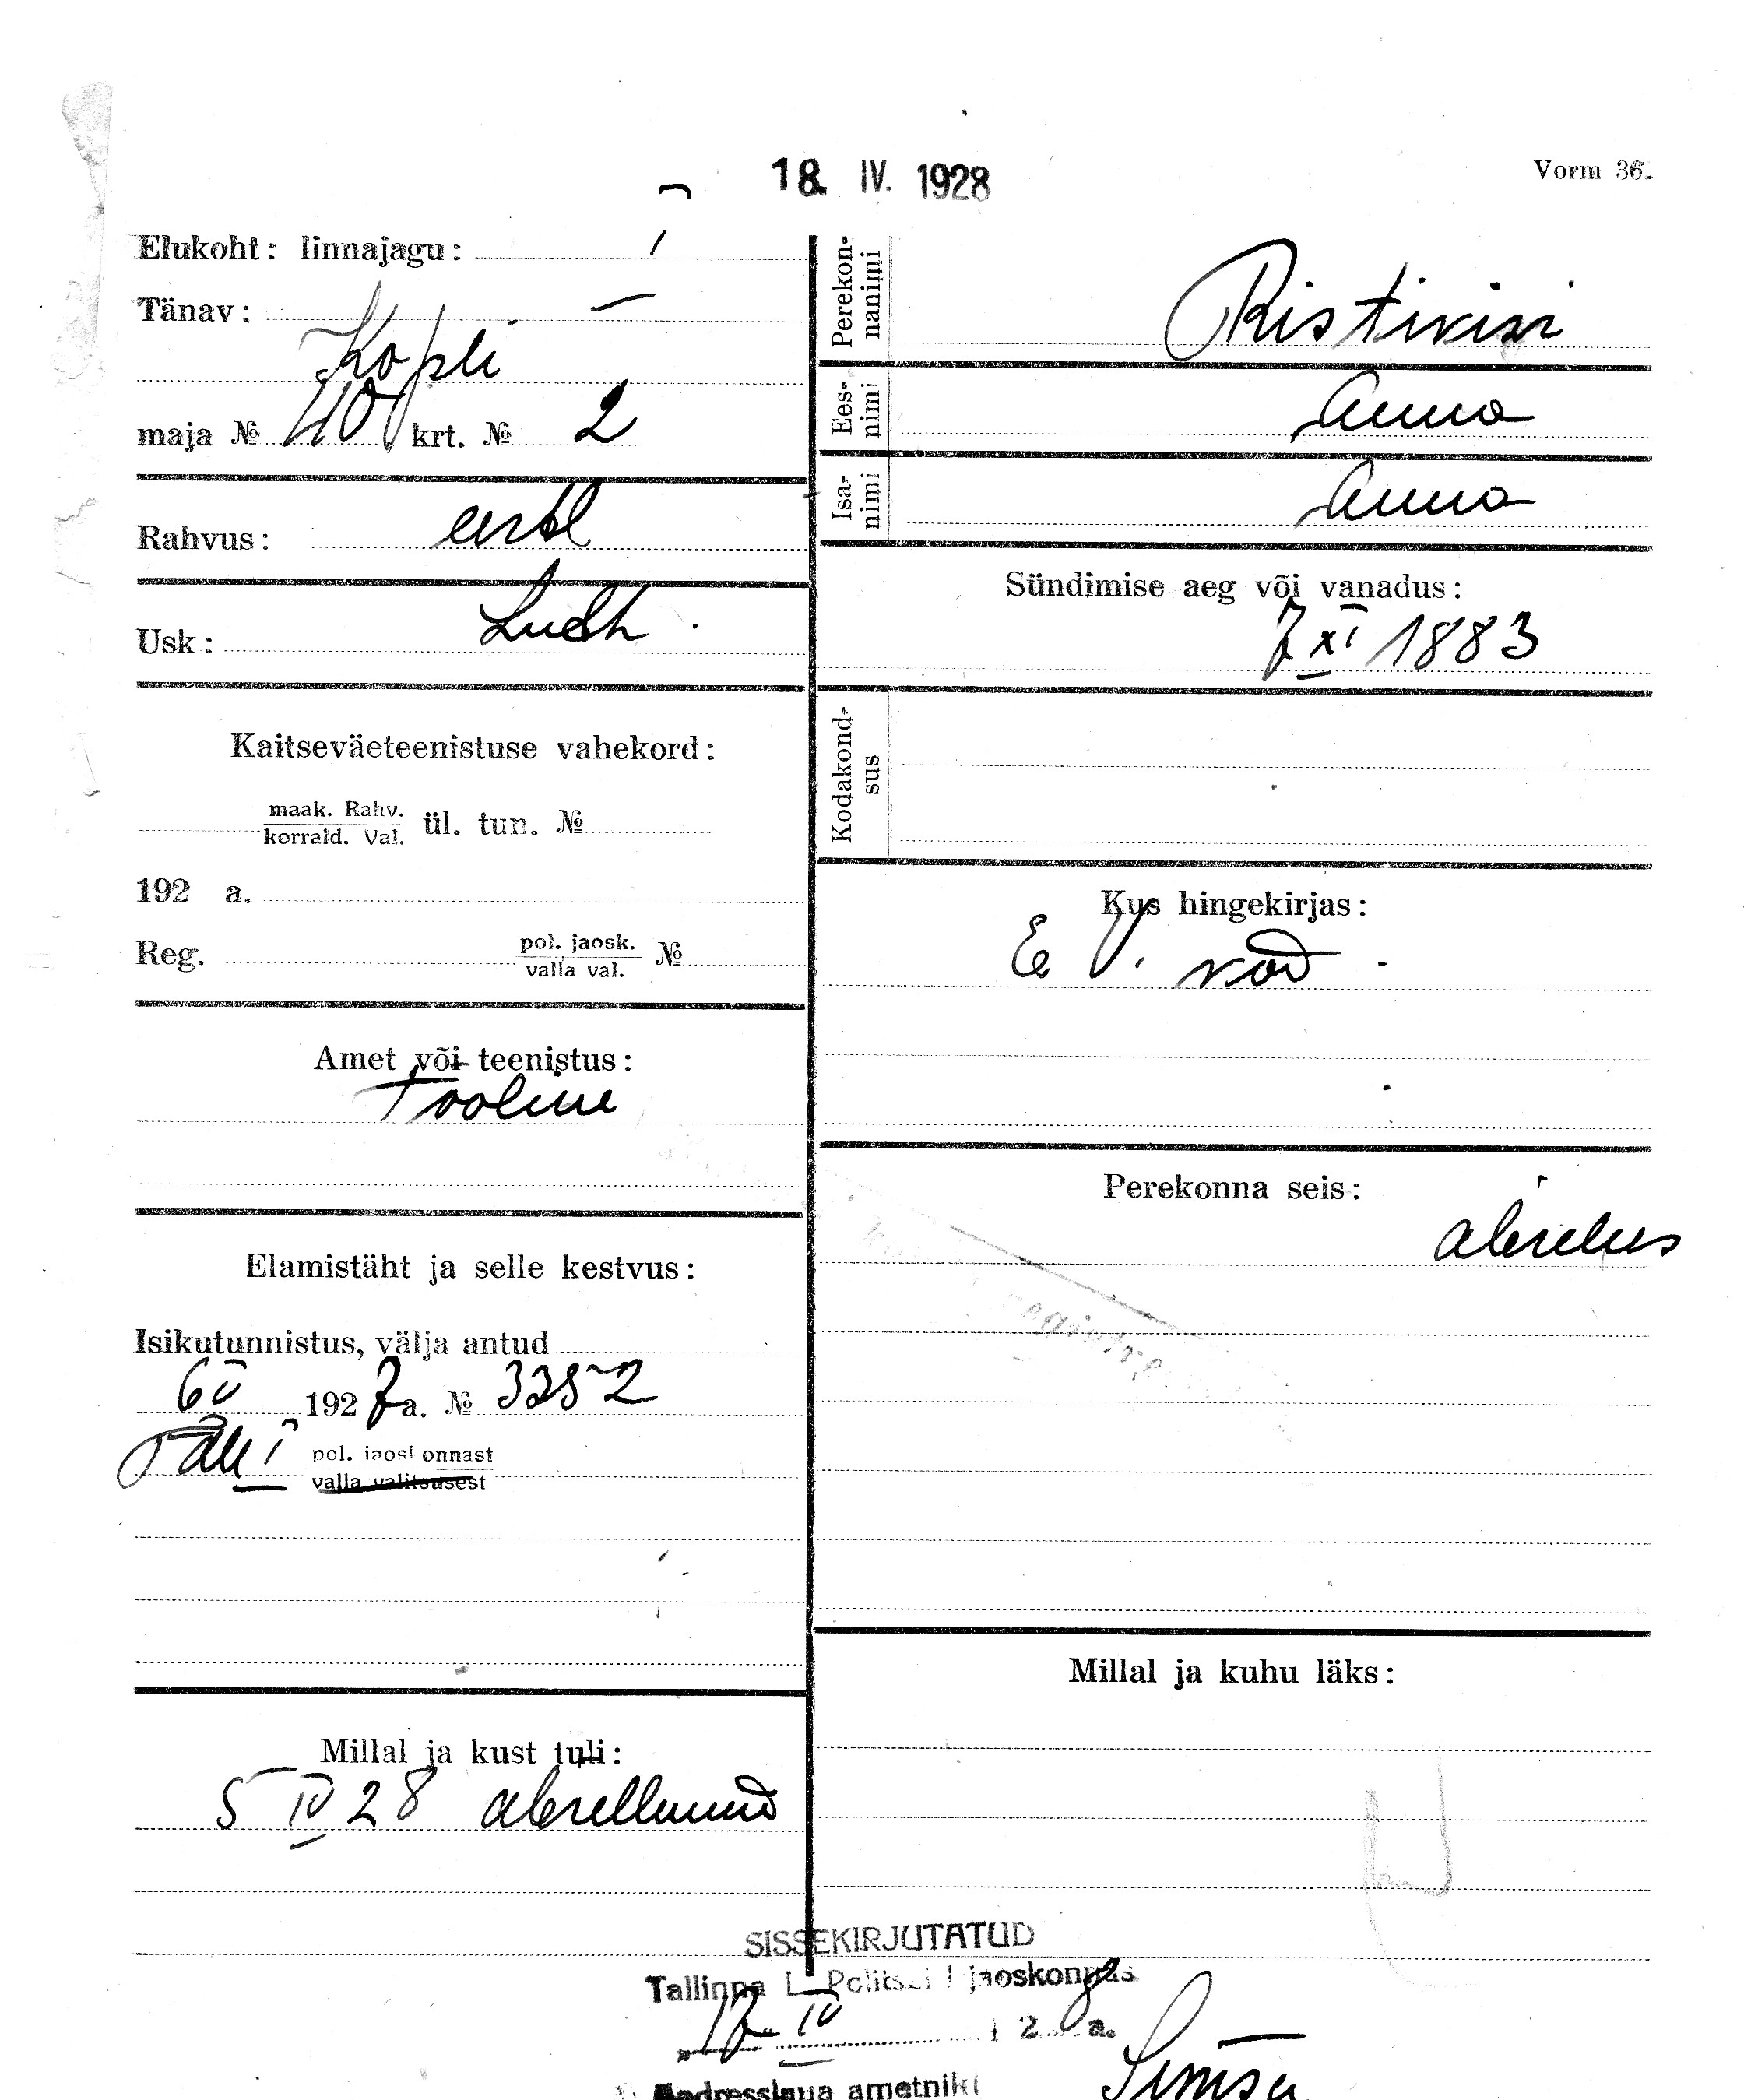 18. IV. 1928
Vorm 36.
Elukoht: linnajagu: I
Tänav:
Kopli
maja № 40 krt. № 2
Rahvus: eestl
Usk: Luth.
Kaitseväeteenistuse vahekord:
maak. Rahv.
korrald. Val. ül. tun. №
192 a.
Reg. pol. jaosk. №
valla val.
Amet või teenistus:
Tööline
Elamistäht ja selle kestvus:
Isikutunnistus, välja antud
1927 a. № 3352
Tall I pol. jaoskonnast
valla valitsusest
Millal ja kust tuli:
5 IV 28 abiellunud
Perekon-
nanimi
Ristivisi
Ees-
nimi
Anna
Isa-
nimi
Anna
Sündimise aeg või vanadus:
7 XI 1883
Kodakond-
sus
Kus hingekirjas:
E V. kod.
Perekonna seis:
abielus
Millal ja kuhu läks:
SISSEKIRJUTATUD
Tallinna L. Politsei I jaoskonnas
17. IV 28 a.
Aadresslaua ametnik